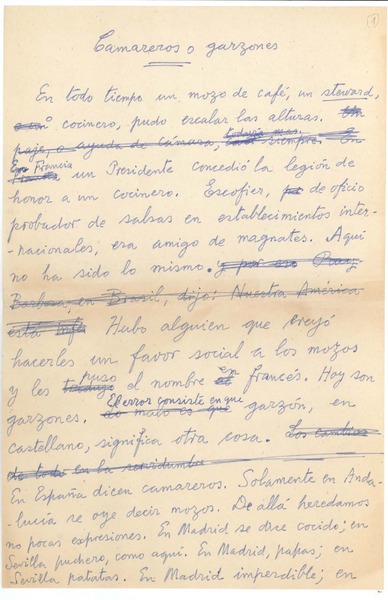 1
Camareros o garzones
En todo tiempo un mozo de café, un steward,
o un cocinero, pudo escalar las alturas. Un
todavía mas.
paje, o ayuda de cámara, casi siempre. En
En Francia
un Presidente concedió la legión de
honor a un cocinero. Escofier, de oficio
probador de salsas en establecimientos inter-
-nacionales, era amigo de magnates. Aquí
no ha sido lo mismo. y por eso Ruy
Barbosa, en Brasil, dijo: Nuestra América
está
Hubo alguien que creyó
hacerles un favor social a los mozos
puso en
y les tradujo el nombre al francés. Hay son
El error consiste en que
garzones. Lo malo es que garzón, en
castellano, significa otra cosa. Los cambios
de todo en la servidumbre
En España dicen camareros. Solamente en Anda-
-lucía se oye decir mozos. De allá heredamos
no pocas expresiones. En Madrid se dice cocido; en
Sevilla puchero, como aquí. En Madrid, papas; en
Sevilla patatas. En Madrid imperdible; en